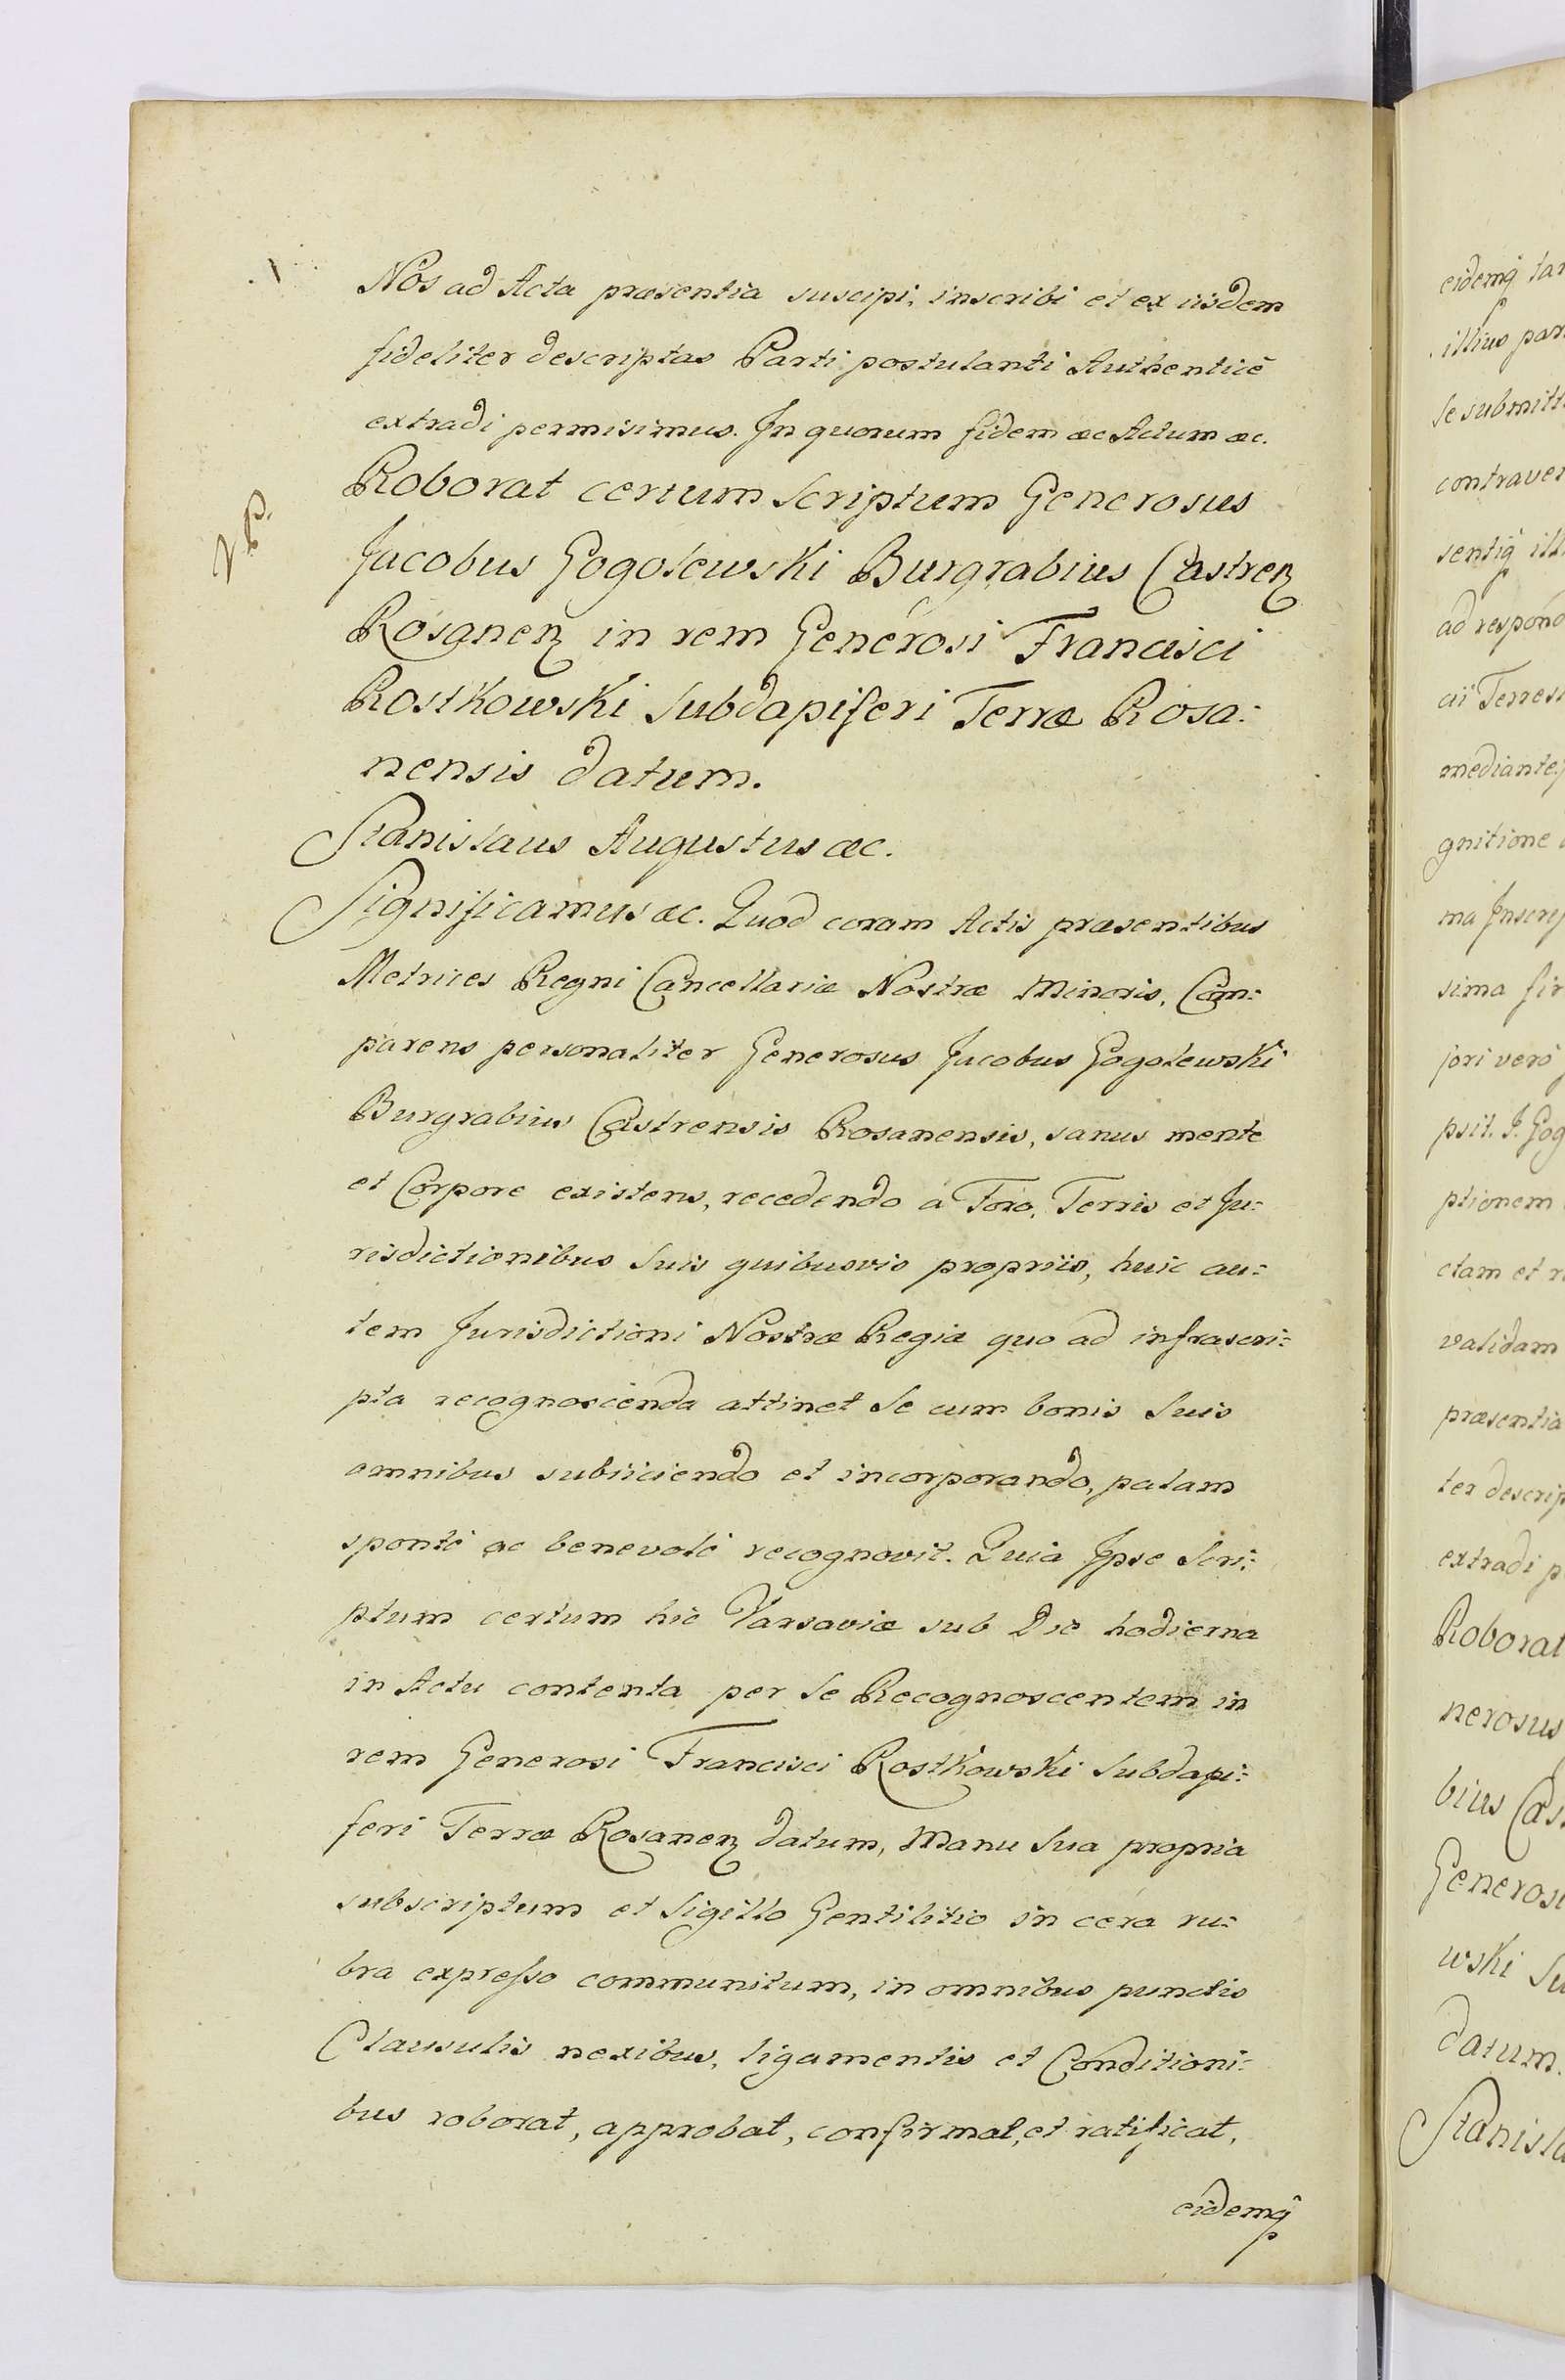 Nos ad Acta præsentia suscipi, inscribi et ex iisdem
fideliter descriptas Parti postulanti Authenticè
extradi permisimus. In quorum fidem æc Actum æc.
Roborat certum Scriptum Generosus
Jacobus Gogolewski Burgrabius Castren
Rosanen in rem Generosi Francisci
Rostkowski Subdapiferi Terræ Rosa=
nensis datum.
Stanislaus Augustus æc.
Significamus æc. Quod coram Actis præsentibus
Metrices Regni Cancellariæ Nostræ Minoris, Com=
parens personaliter Generosus Jacobus Gogolewski
Burgrabius Castrensis Rosanensis, sanus mente
et Corpore existens, recedendo a Foro, Terris et Ju=
risdictionibus Suis quibusvis propriis, huic au=
tem Jurisdictioni Nostræ Regiæ quo ad infrascri=
pta recognoscenda attinet Se cum bonis Suis
omnibus subiiciendo et incorporando, palam
sponté ac benevolé recognovit. Quia Ipse Scri=
ptum certum hic Varsaviæ sub Die hodierna
in Actu contenta per Se Recognoscentem in
rem Generosi Francisci Rostkowski Subdapi=
feri Terræ Rosanen datum, Manu Sua propria
subscriptum et Sigillo Gentilitio in cera ru=
bra expresso communitum, in omnibus punctis
Clausulis nexibus, ligamentis et Conditioni=
bus roborat, approbat, confirmat, et ratificat,
eidemq
eidemq tam
illius par
Se submitt
contraven
sentiq ill
ad respond
cii Terrest
mediante
gnitione
ma Inscrip
sima fir
jori verò
psit. J. Gog
ptionem
ctam et r
validam
præsentia
ter descrip
extradi p
Roborat
nerosus
bius Cas
Generosi
wski Su
datum.
Stanisla